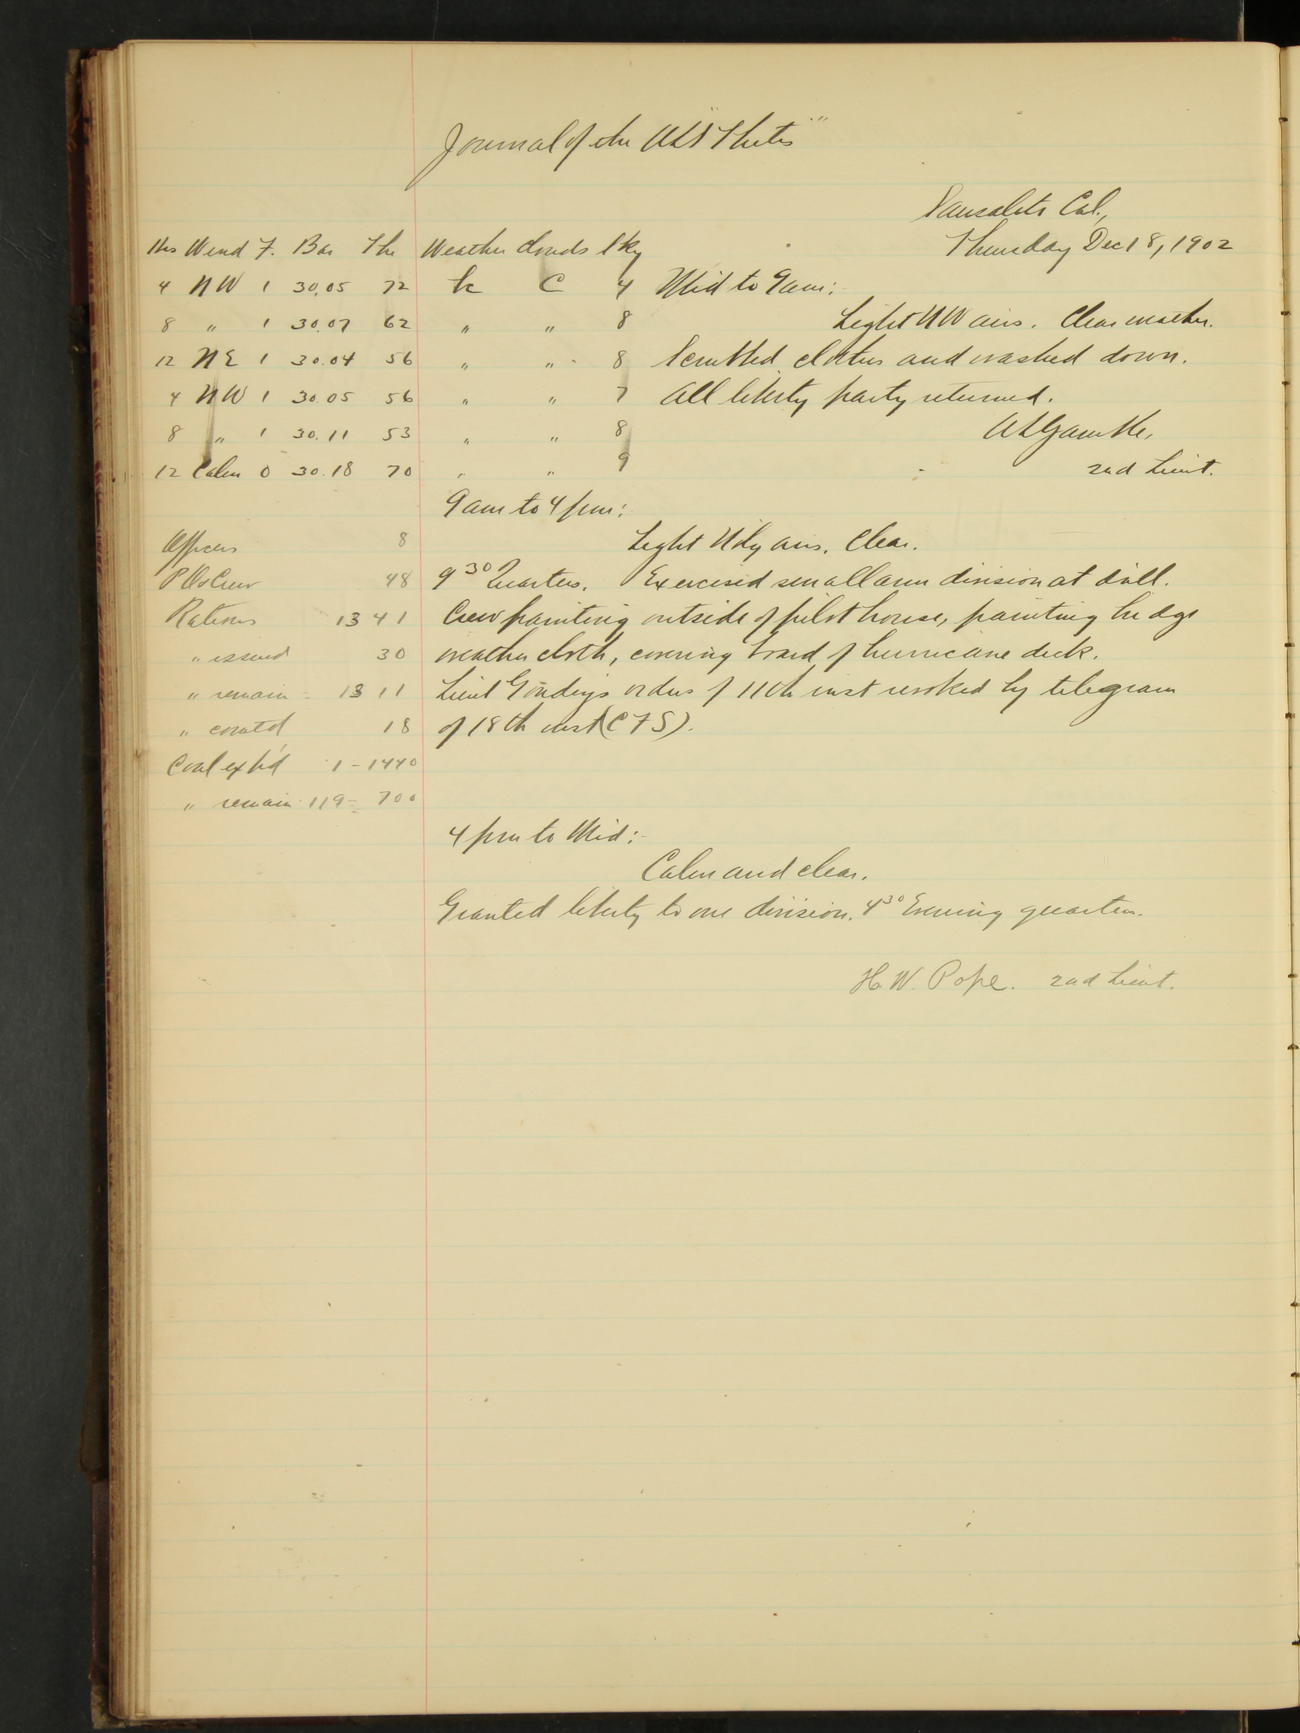 Journal of the USS "Thetis"
Sausalito Cal.,
Thursday Dec 18, 1902
Hrs Wind F. Bar The Weather Clouds Sky
4 NW 1 30.05 72 bc C 4 Mid to 9am:
8 " 1 30.07 62 " " 8 Light NW airs. Clear weather.
12 NE 1 30.04 56 " " 8 Scrubbed clothes and washed down.
4 NW 1 30.05 56 " " 7 All liberty party returned.
8 " 1 30.11 53 " " 8 W S Gamble,
12 Calm 0 30.18 70 " " 9 2nd Lieut.
9am to 4pm:
Officers 8 Light N'ly airs. Clear.
POs Crew 48 9 30 Quarters. Exercised small arm division at drill.
Rations 1341 Crew painting outside of pilot house, painting bridge
" issued 30 weather cloth, covering board of hurricane deck.
" remain - 1311 Lieut orders of 11th inst revoked by telegram
" comtd 18 of 18th inst (CFS).
Coal exp'd 1-1440
" remain 119- 700
4pm to Mid:
Calm and clear.
Granted liberty to one division. 4 30 Evening quarters.
H. W. Pope. 2nd Lieut.